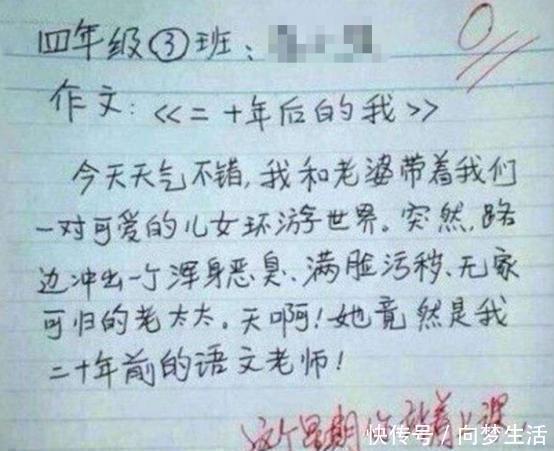 四年级③班:
0
作文:《二十年后的我》
今天天气不错,我和老婆带着我们
一对可爱的儿女环游世界。突然,路
边冲出一个浑身恶臭、满脸污秽、无家
可归的老太太。天啊!她竟然是我
二十年前的语文老师!
这个星期你站着上课
快传号/向梦生活